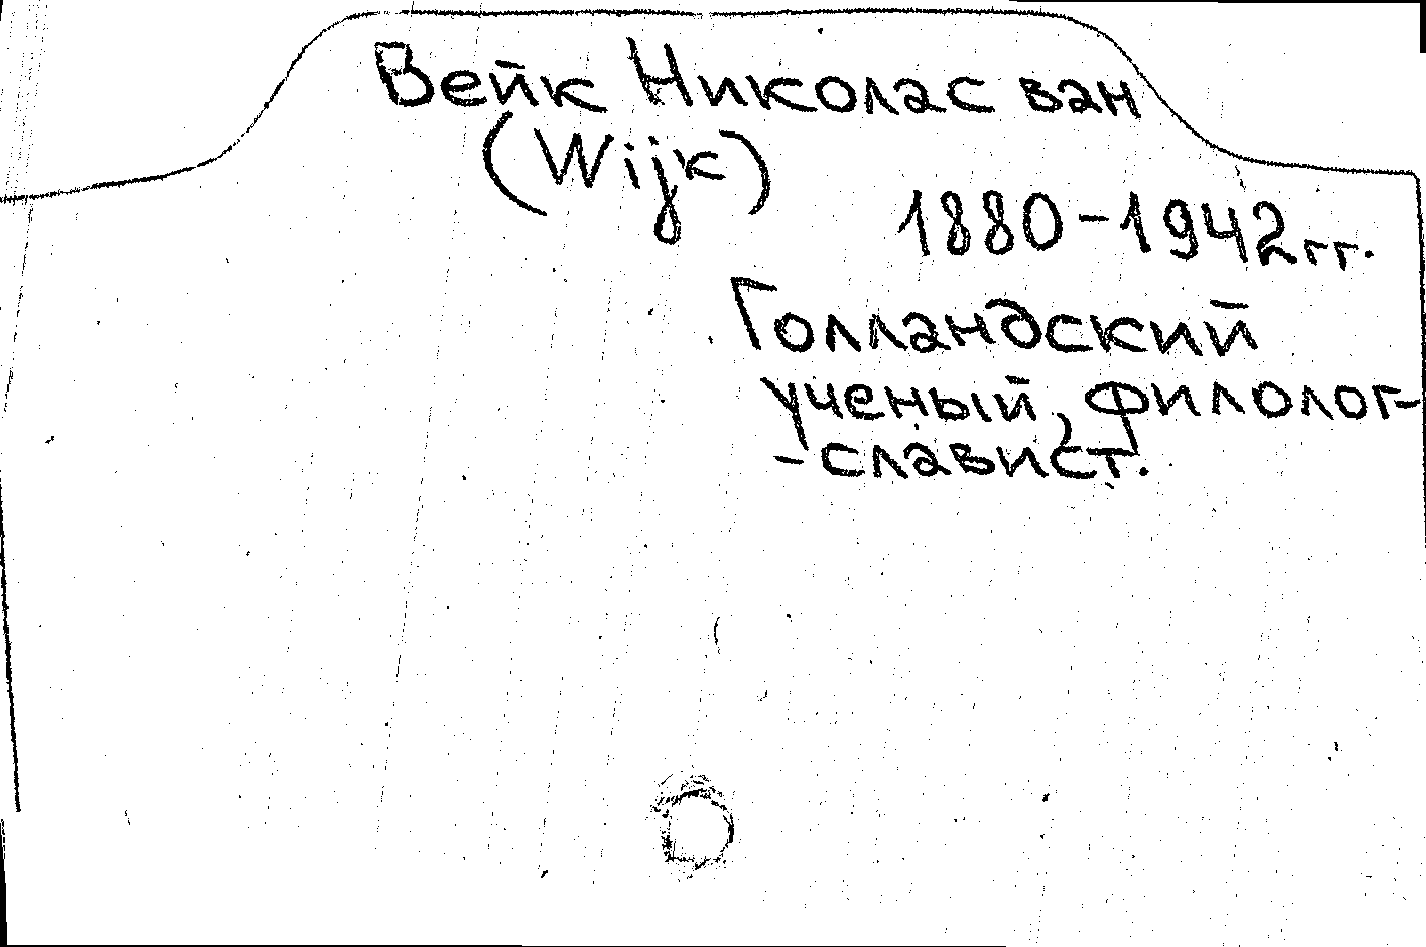 Вейк Николас ван
(Wijk)
1880-1942гг.
Голландский
ученый, филолог-
-славист.